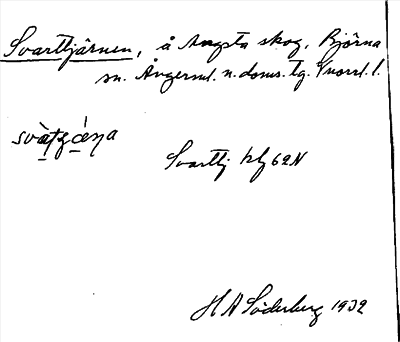 Svarttjärnen, å Angsta skog, Björna
sn. Ångerml. n. doms. tg. Vnorrl. l.
Svarttj
62N
H A Söderberg 1932